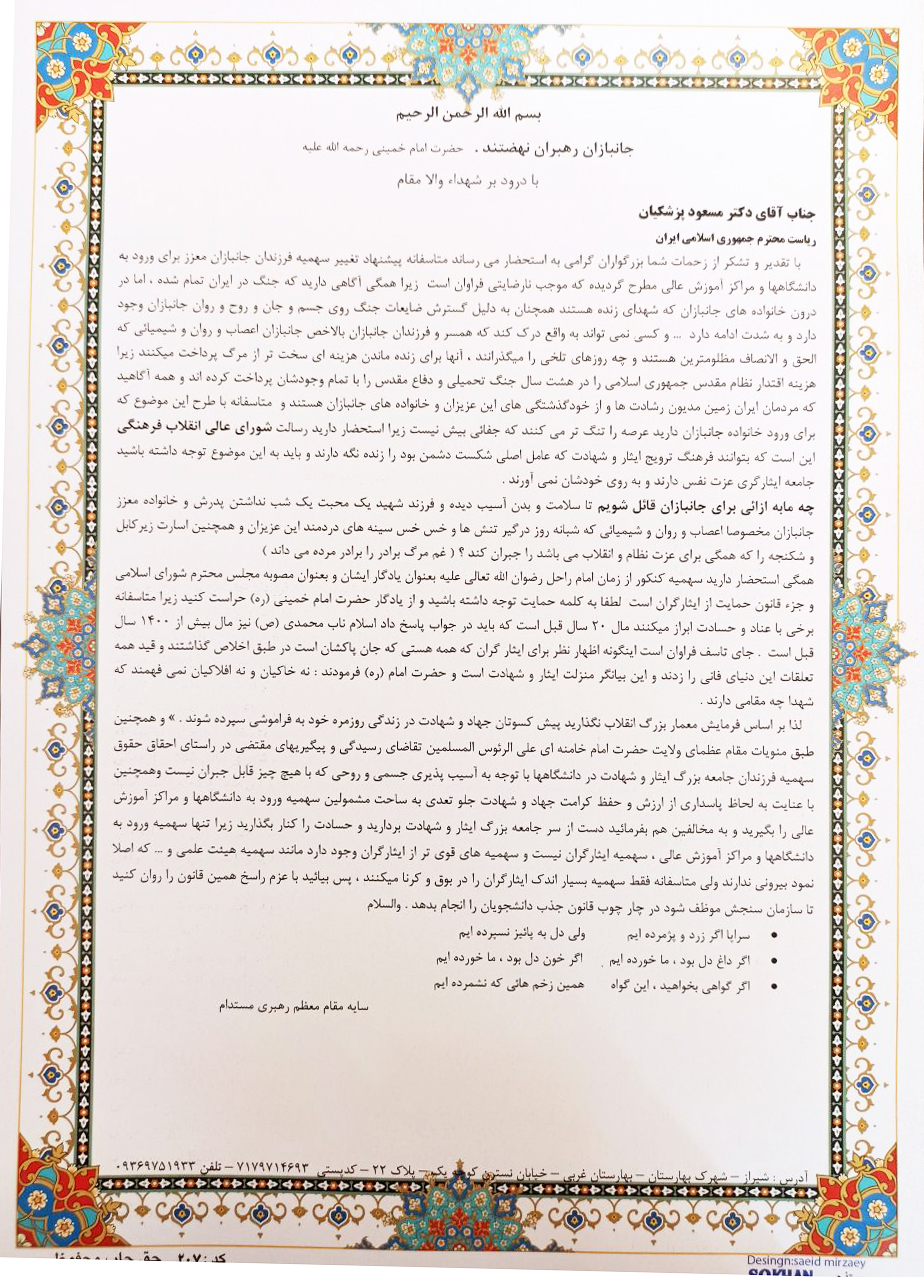 بسم الله الرحمن الرحیم
جانبازان رهبران نهضتند . حضرت امام خمینی رحمه الله علیه
با درود بر شهداء والا مقام
جناب آقای دکتر مسعود پزشکیان
ریاست محترم جمهوری اسلامی ایران
با تقدیر و تشکر از زحمات شما بزرگواران گرامی به استحضار می رساند متاسفانه پیشنهاد تغییر سهمیه فرزندان جانبازان معزز برای ورود به
دانشگاهها و مراکز آموزش عالی مطرح گردیده که موجب نارضایتی فراوان است زیرا همگی آگاهی دارید که جنگ در ایران تمام شده ، اما در
درون خانواده های جانبازان که شهدای زنده هستند همچنان به دلیل گسترش ضایعات جنگ روی جسم و جان و روح و روان جانبازان وجود
دارد و به شدت ادامه دارد ... و کسی نمی تواند به واقع درک کند که همسر و فرزندان جانبازان بالاخص جانبازان اعصاب و روان و شیمیائی که
الحق و الانصاف مظلومترین هستند و چه روزهای تلخی را میگذرانند ، آنها برای زنده ماندن هزینه ای سخت تر از مرگ پرداخت میکنند زیرا
هزینه اقتدار نظام مقدس جمهوری اسلامی را در هشت سال جنگ تحمیلی و دفاع مقدس را با تمام وجودشان پرداخت کرده اند و همه آگاهید
که مردمان ایران زمین مدیون رشادت ها و از خودگذشتگی های این عزیزان و خانواده های جانبازان هستند و متاسفانه با طرح این موضوع که
برای ورود خانواده جانبازان دارید عرصه را تنگ تر می کنند که جفائی بیش نیست زیرا استحضار دارید رسالت شورای عالی انقلاب فرهنگی
این است که بتوانند فرهنگ ترویج ایثار و شهادت که عامل اصلی شکست دشمن بود را زنده نگه دارند و باید به این موضوع توجه داشته باشید
جامعه ایثارگری عزت نفس دارند و به روی خودشان نمی آورند .
چه مابه ازائی برای جانبازان قائل شویم تا سلامت و بدن آسیب دیده و فرزند شهید یک محبت یک شب نداشتن پدرش و خانواده معزز
جانبازان مخصوصا اعصاب و روان و شیمیائی که شبانه روز درگیر تنش ها و خس خس سینه های دردمند این عزیزان و همچنین اسارت زیرکابل
و شکنجه را که همگی برای عزت نظام و انقلاب می باشد را جبران کند ؟ ( غم مرگ برادر را برادر مرده می داند )
همگی استحضار دارید سهمیه کنکور از زمان امام راحل رضوان الله تعالی علیه بعنوان یادگار ایشان و بعنوان مصوبه مجلس محترم شورای اسلامی
و جزء قانون حمایت از ایثارگران است لطفا به کلمه حمایت توجه داشته باشید و از یادگار حضرت امام خمینی (ره) حراست کنید زیرا متاسفانه
برخی با عناد و حسادت ابراز میکنند مال ۲۰ سال قبل است که باید در جواب پاسخ داد اسلام ناب محمدی (ص) نیز مال بیش از ۱۴۰۰ سال
قبل است . جای تاسف فراوان است اینگونه اظهار نظر برای ایثار گران که همه هستی که جان پاکشان است در طبق اخلاص گذاشتند و قید همه
تعلقات این دنیای فانی را زدند و این بیانگر منزلت ایثار و شهادت است و حضرت امام (ره) فرمودند : نه خاکیان و نه افلاکیان نمی فهمند که
شهدا چه مقامی دارند .
لذا بر اساس فرمایش معمار بزرگ انقلاب نگذارید پیش کسوتان جهاد و شهادت در زندگی روزمره خود به فراموشی سپرده شوند . » و همچنین
طبق منویات مقام عظمای ولایت حضرت امام خامنه ای علی الرئوس المسلمین تقاضای رسیدگی و پیگیریهای مقتضی در راستای احقاق حقوق
سهمیه فرزندان جامعه بزرگ ایثار و شهادت در دانشگاهها با توجه به آسیب پذیری جسمی و روحی که با هیچ چیز قابل جبران نیست وهمچنین
با عنایت به لحاظ پاسداری از ارزش و حفظ کرامت جهاد و شهادت جلو تعدی به ساحت مشمولین سهمیه ورود به دانشگاهها و مراکز آموزش
عالی را بگیرید و به مخالفین هم بفرمائید دست از سر جامعه بزرگ ایثار و شهادت بردارید و حسادت را کنار بگذارید زیرا تنها سهمیه ورود به
دانشگاهها و مراکز آموزش عالی ، سهمیه ایثارگران نیست و سهمیه های قوی تر از ایثارگران وجود دارد مانند سهمیه هیئت علمی و ... که اصلا
نمود بیرونی ندارند ولی متاسفانه فقط سهمیه بسیار اندک ایثارگران را در بوق و کرنا میکنند ، پس بیائید با عزم راسخ همین قانون را روان کنید
تا سازمان سنجش موظف شود در چار چوب قانون جذب دانشجویان را انجام بدهد . والسلام
• سراپا اگر زرد و پژمرده ایم ولی دل به پائیز نسپرده ایم
• اگر داغ دل بود ، ما خورده ایم اگر خون دل بود ، ما خورده ایم
• اگر گواهی بخواهید ، این گواه همین زخم هائی که نشمرده ایم
سایه مقام معظم رهبری مستدام
آدرس : شیراز – شهرک بهارستان – بهارستان غربی – خیابان نسترن کوچه یکم – پلاک ۲۲ – کدپستی ۷۱۷۹۷۱۴۶۹۳ – تلفن ۰۹۳۶۹۷۵۱۹۳۳
Desingn:saeid mirzaey
کد : ۲۰۷ حق چاپ محفوظ
SOKHAN